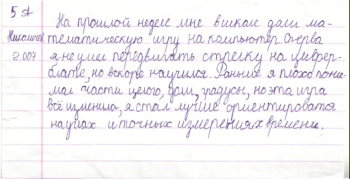 5 А
На прошлой неделе мне в школе дали ма-
тематическую игру на компьютер. Сперва
2.009 я не умел передвигать стрелку на цифер-
блате, но вскоре научился. Раньше я плохо пони-
мал части целого, доли, градусы, но эта игра
всё изменила, я стал лучше ориентироватся
на углах и точных измерениях времени.